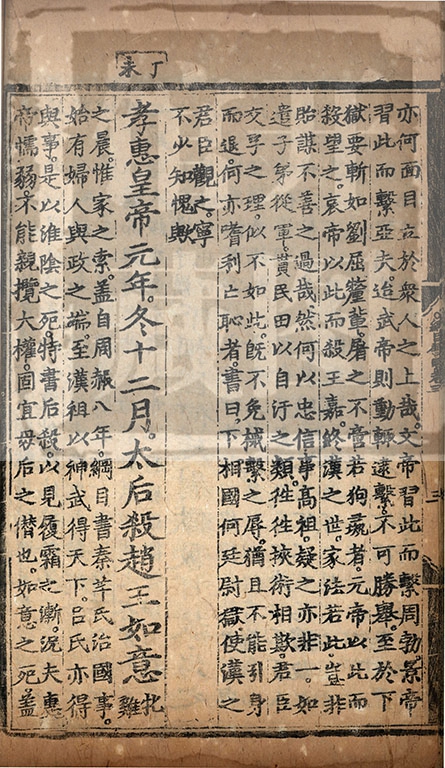 丁未
亦何面目立於衆人之上哉。文帝習此而繫周勃。景帝
習此而繫亞夫。迨武帝則動輒逮繫。不可勝舉。至於下
獄要斬如劉屈氂輩。屠之不啻若狗彘者。元帝以此而
殺望之。哀帝以此而殺王嘉。終漢之世。家法若此。豈非
貽謀不善之過哉。然何以忠信事高祖。疑之亦非一。如
遣子弟從軍。貰民田以自汙之類。往往挾術相欺。君臣
交孚之理。似不如此。旣不免械繫之辱。猶且不能引身
而退。何亦嗜利亡恥者。書曰。下相國何廷尉獄使漢之
君臣觀之。寧
不少知愧歟
孝惠皇帝元年。冬十二月。太后殺趙王如意
牝
雞
之晨。惟家之索。蓋自周赧八年。綱目書秦羋氏治國事。
始有婦人與政之端。至漢祖以神武得天下。呂氏亦得
與事。是以淮陰之死。特書后殺。以見履霜之漸。況夫惠
帝懦弱。不能親攬大權。固宜母后之僭也。如意之死蓋